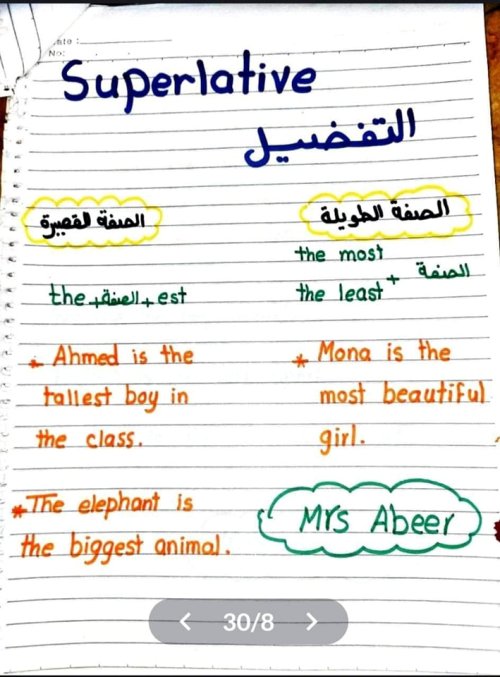 ate :
No:
Superlative
التفضيل
الصفة القصيرة
the + الصفة + est
* Ahmed is the
tallest boy in
the class.
* The elephant is
the biggest animal.
الصفة الطويلة
the most
the least + الصفة
* Mona is the
most beautiful
girl.
Mrs Abeer
< 30/8 >